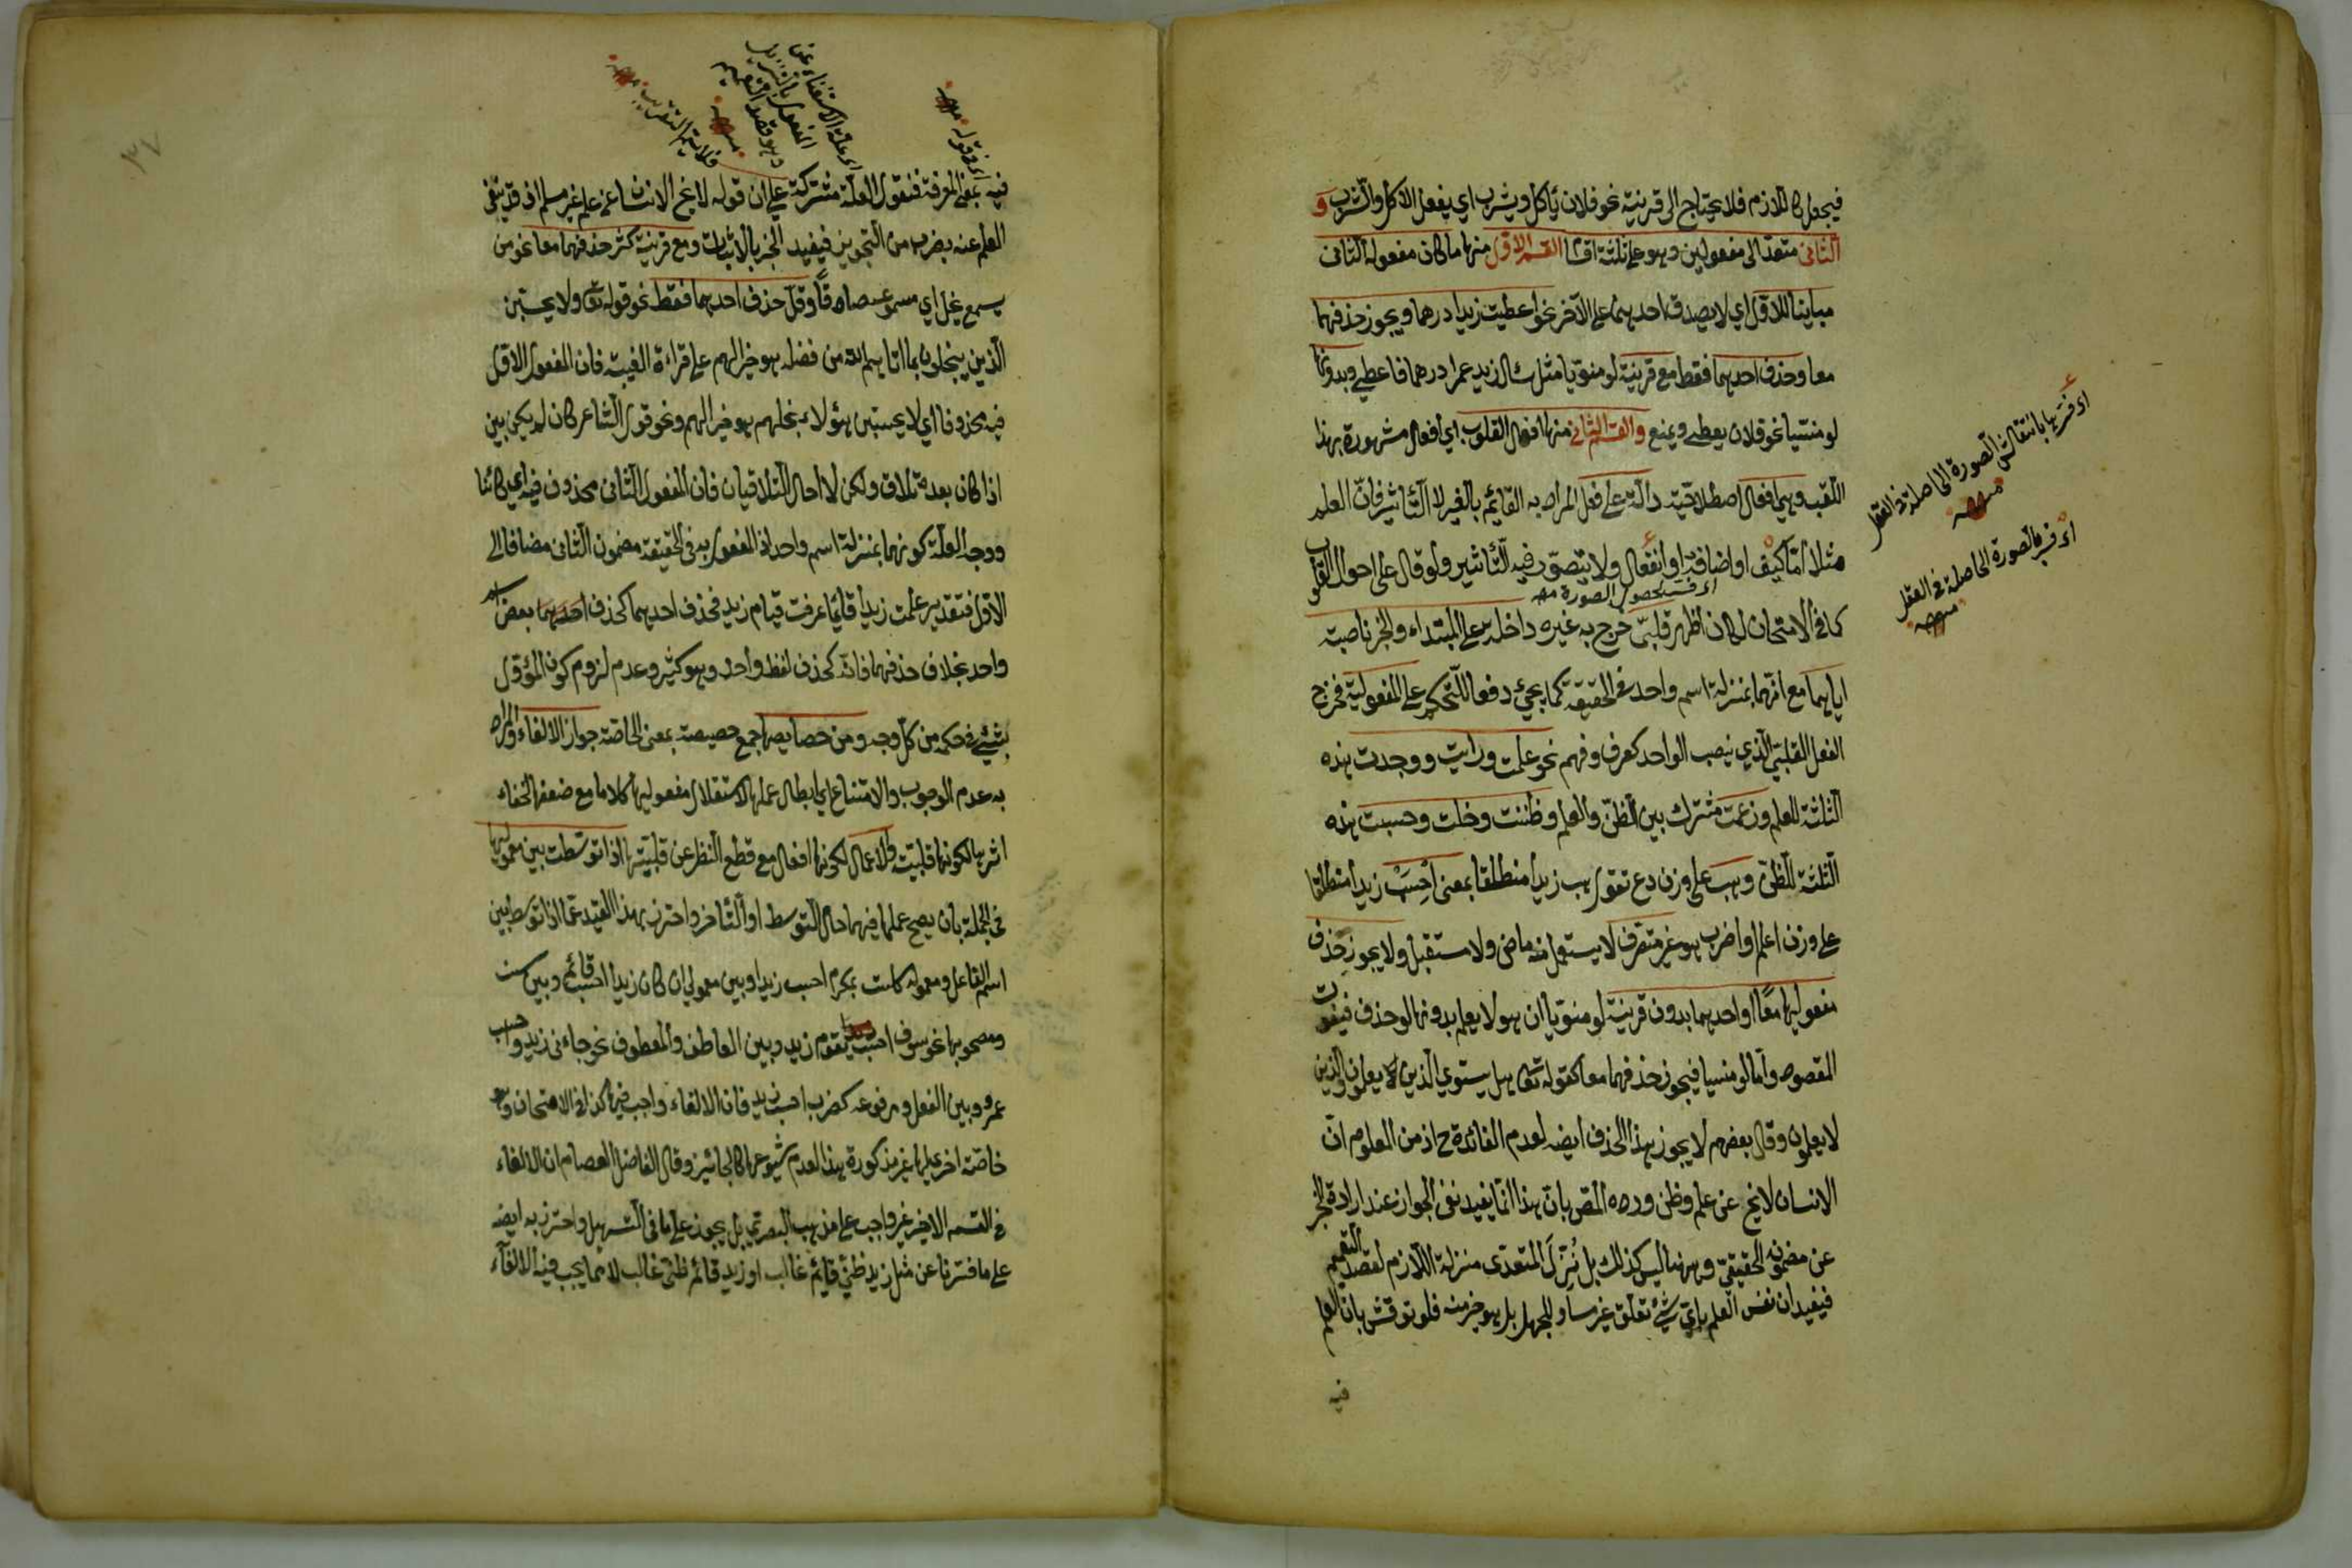 فيجعل كاللازم فلا يحتاج الى قرينة نحو فلان يأكل ويشرب اي يفعل الاكل والشرب و
الثانى متعد الى مفعولين وهو على ثلثة اقسام القسم الاول منها ما كان مفعوله الثانى
مباينا للاول اي لا يصدق احدهما على الآخر نحو اعطيت زيدا درهما ويجوز حذفهما
معا وحذف احدهما فقط مع قرينة لو منويا مثل سئال زيد عمرا درهما فاعطي وبدونها
لو منسيا نحو فلان يعطي ويمنع والقسم الثانى منها افعال القلوب اي افعال مشهورة بهذا
اللقب وهي افعال اصطلاحية دالة على فعل المراد به القائم بالغير لا التأثير فان العلم
مثلا اما كيف او اضافة او انفعال ولا يتصور فيه التأثير ولو قال على احوال القلوب
اى فسر بحصول الصورة منه
كما في الامتحان لكان اظهر قلبى خرج به غيره داخلة على المبتداء والخبر ناصبة
اياهما مع انهما بمنزلة اسم واحد في الحقيقة كما يجيء دفعا للتحكم على المفعولية فخرج
الفعل القلبى الذي ينصب الواحد كعرف وفهم نحو علمت ورايت ووجدت هذه
الثلثة للعلم وزعمت مشترك بين الظن والعلم وظننت وخلت وحسبت هذه
الثلثة للظن وهب على وزن دع تقول هب زيدا منطلقا بمعنى احسب زيدا منطلقا
على وزن اعلم او اضرب هو غير متصرف لا يستعمل منه ماض ولا مستقبل ولا يجوز حذف
مفعوليها معا او احدهما بدون قرينة لو منويا ان هو لا يعلم بدونها لو حذف فيفوت
المقصود واما لو منسيا فيجوز حذفهما معا كقوله تعالى هل يستوي الذين يعلمون والذين
لا يعلمون وقال بعضهم لا يجوز هذا الحذف ايضه لعدم الفائدة ح اذ من المعلوم ان
الانسان لا يخ عن علم وظن ورده المص بان هذا انما يفيد نفى الجواز عند ارادة الخبر
عن مضمونه الحقيقي وههنا ليس كذلك بل نُزِّلَ المتعدى منزلة اللازم لقصد التعميم
فيفيد ان نفس العلم باي شيء تعلق غير مساو للجهل بل هو خير منه فلو نوقش بان العلم
فيه
اى فسر بانتقاش الصورة الحاصلة في العقل منه
اى فسر بالصورة الحاصلة في العقل منه
٣٧
اى في قوله منه
اى علة الاستغناء عن
المفعول بالتنزيل
وهو قصد التعميم
منه
فلا يتم التقريب منه
فيه بمعنى المعرفة فنقول العلة مشتركة على ان قوله لا يخ الانسان عن علم غير مسلم اذ قد ينفى
العلم عنه بضرب من التجويز فيفيد الخبر بالاثبات ومع قرينة كثر حذفهما معا نحو من
يسمع يخل اي مسموعه صادقا وقل حذف احدهما فقط نحو قوله تعالى ولا يحسبن
الذين يبخلون بما اتاهم الله من فضله هو خيرا لهم على قراءة الغيبة فان المفعول الاول
فيه محذوف اي لا يحسبن هؤلاء بخلهم هو خيرا لهم ونحو قول الشاعر كان لم يكن بين
اذا كان بعده تلاق ولكن لا احال التلاقيا فان المفعول الثانى محذوف فيه اي كائنا
ووجه العلة كونهما بمنزلة اسم واحد اذ المفعول به في الحقيقة مضمون الثانى مضافا الى
الاول فتقدير علمت زيدا قائما عرفت قيام زيد فحذف احدهما كحذف بعض اسم
واحد بخلاف حذفهما فانه كحذف لفظ واحد وهو كثير وعدم لزوم كون المؤول
بشيء في حكمه من كل وجه ومن خصايصها جمع خصيصة بمعنى الخاصة جواز الالغاء والمراد
به عدم الوجوب والامتناع اي ابطال عملها لاستقلال مفعوليها كلاما مع ضعفها لخفاء
اثرها لكونها قلبية والاعمال لكونها افعال مع قطع النظر عن قلبيتها اذا توسطت بين معموليها
في الجملة بان يصح عملها فيهما حال التوسط او التأخر واحترز بهذا القيد عما اذا توسط بين
اسم الفاعل ومعموله كلست بمكرم احسب زيدا وبين معمولي ان كان زيدا احسب قائم وبين سـ
ومصحوبها نحو سوف احسب يقوم زيد وبين العاطف والمعطوف نحو جاءنى زيد واحسب
عمرو وبين الفعل ومرفوعه كضرب احسب زيد فان الالغاء واجب فيها كذا في الامتحان وهو
خاصة اخرى لها غير مذكورة هذا لعدم شيوعها كالجائز وقال الفاضل العصام ان الالغاء
في القسم الاخير غير واجب على مذهب البصري بل يجوز على ما في التسهيل واحترز به ايضه
على ما فسرنا عن مثل زيد ظني قائم غالب او زيد قائم ظنى غالب لا مما يجب فيه الالغاء